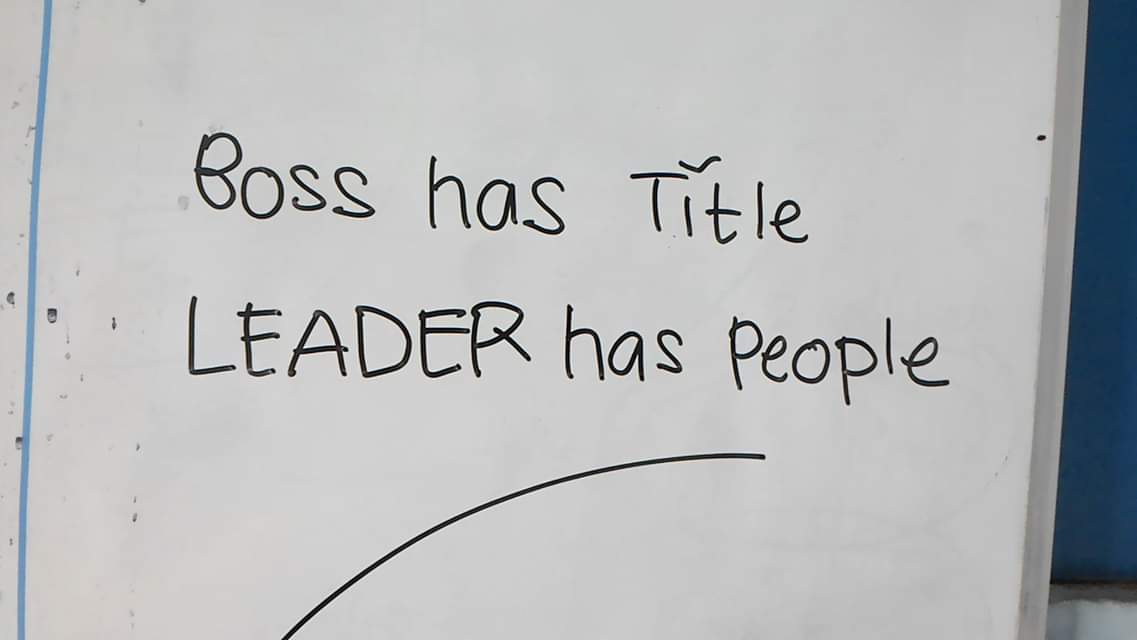 Boss has Title
LEADER has People